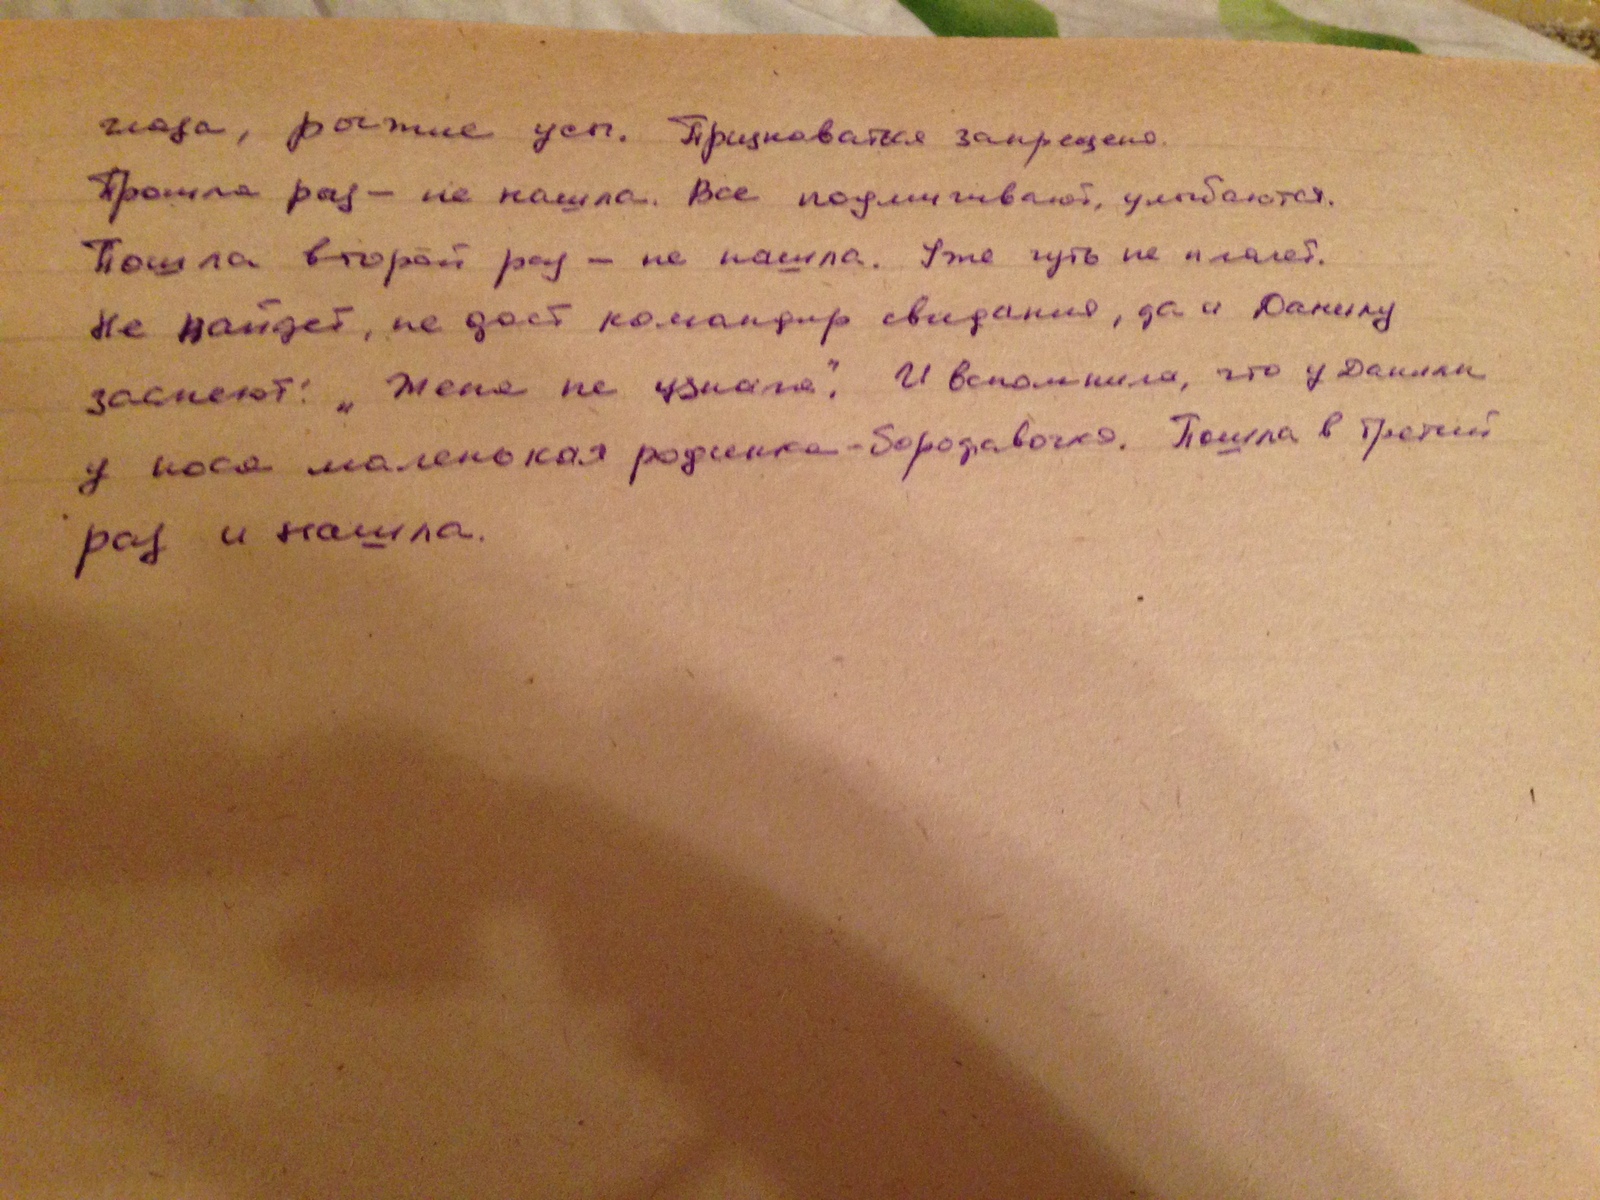 глаза, рыжие усы. Признаваться запрещено.
Прошла раз – не нашла. Все подмигивают, улыбаются.
Пошла второй раз – не нашла. Уже чуть не плачет.
Не найдет, не даст командир свидания, да и Данилу
засмеют: „Жена не узнала”. И вспомнила, что у Данилы
у носа маленькая родинка-бородавочка. Пошла в третий
раз и нашла.